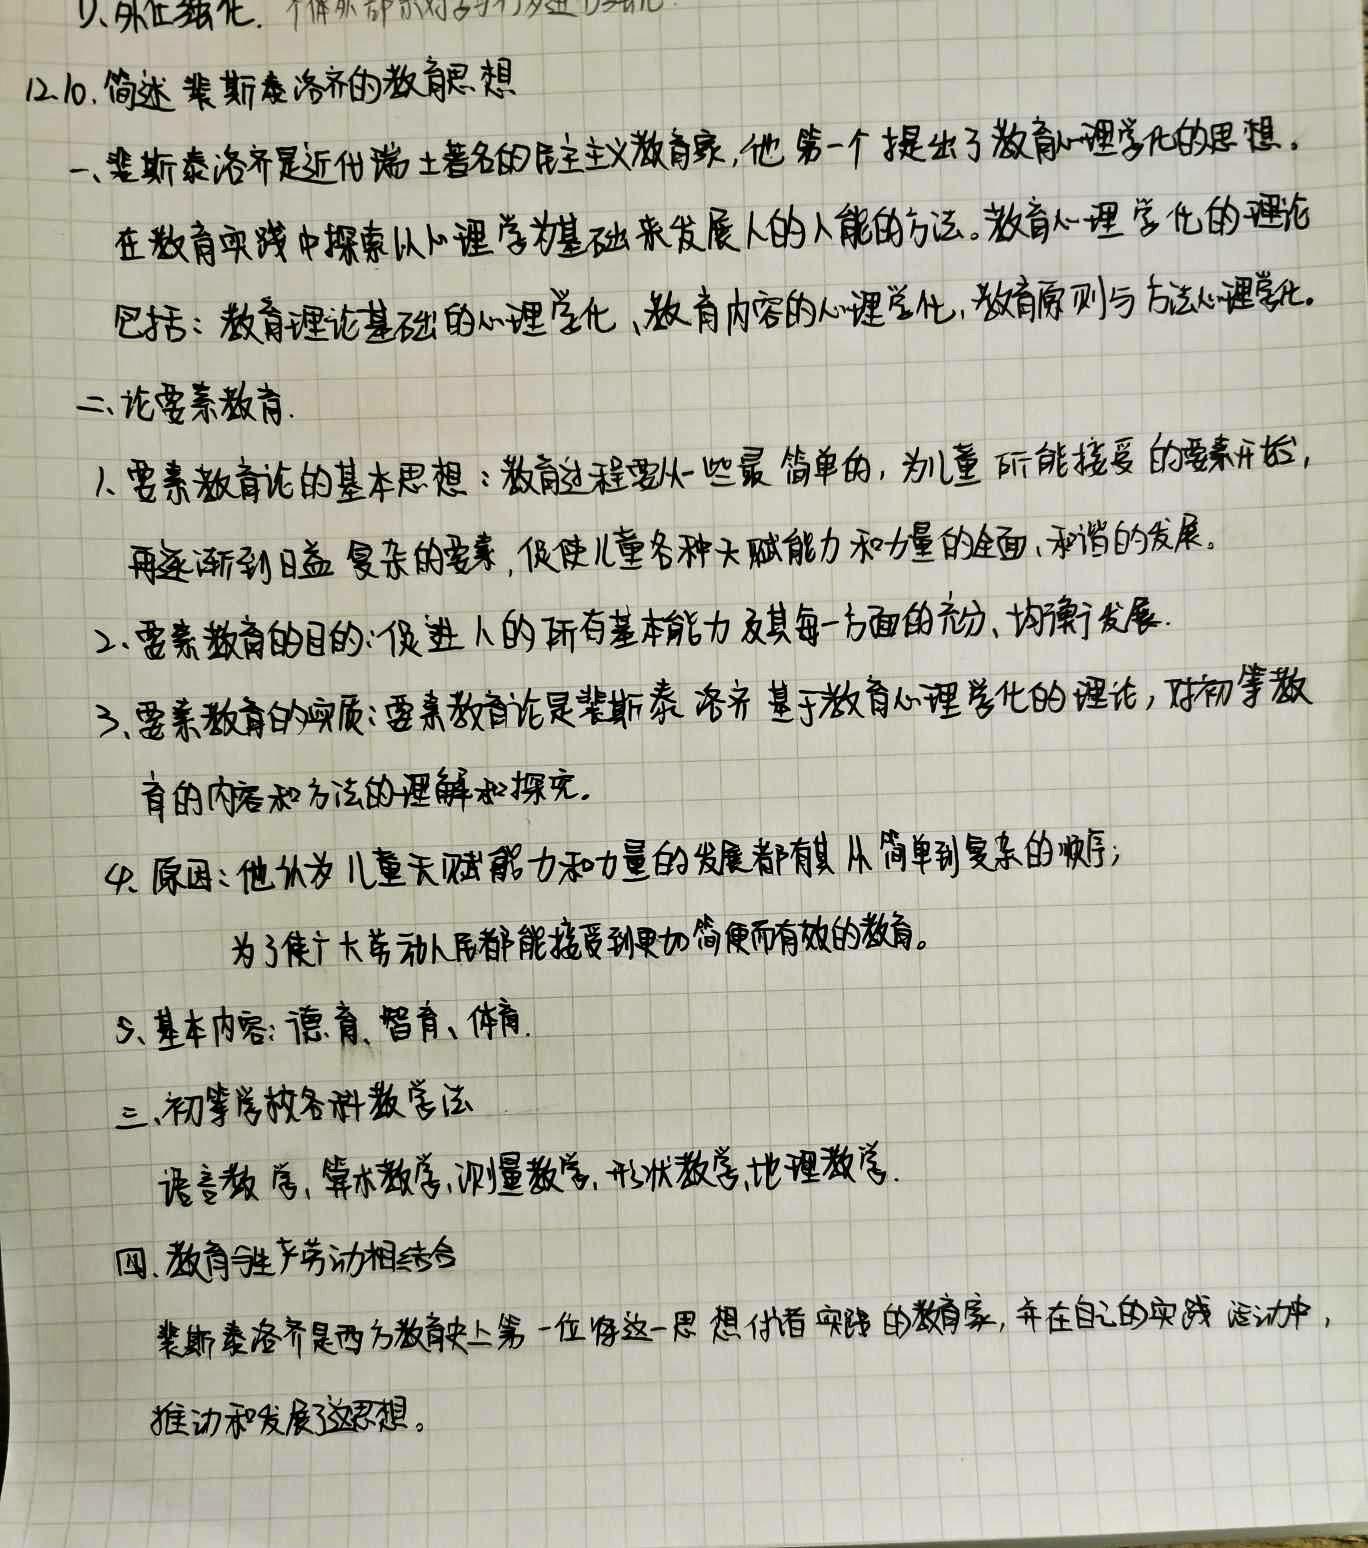 1)、外在强化. 个体外部
12.10. 简述裴斯泰洛齐的教育思想
一、裴斯泰洛齐是近代瑞士著名的民主主义教育家,他第一个提出了教育心理学化的思想。
在教育实践中探索以心理学为基础来发展人的人能的方法。教育心理学化的理论
包括：教育理论基础的心理学化、教育内容的心理学化,教育原则与方法心理学化。
二、论要素教育.
1、要素教育论的基本思想：教育过程要从一些最简单的,为儿童所能接受的要素开始,
再逐渐到日益复杂的要素,促使儿童各种天赋能力和力量的全面、和谐的发展。
2、要素教育的目的:促进人的所有基本能力及其每一方面的充分、均衡发展.
3、要素教育的实质:要素教育论是裴斯泰洛齐基于教育心理学化的理论,对初等教
育的内容和方法的理解和探究。
4. 原因：他认为儿童天赋能力和力量的发展都有其从简单到复杂的顺序;
为了使广大劳动人民都能接受到更加简便而有效的教育。
5、基本内容：德育、智育、体育.
三、初等学校各科教学法
语言教学,算术教学,测量教学,形状教学,地理教学.
四. 教育与生产劳动相结合
裴斯泰洛齐是西方教育史上第一位将这一思想付诸实践的教育家,并在自己的实践活动中,
推动和发展了这思想。